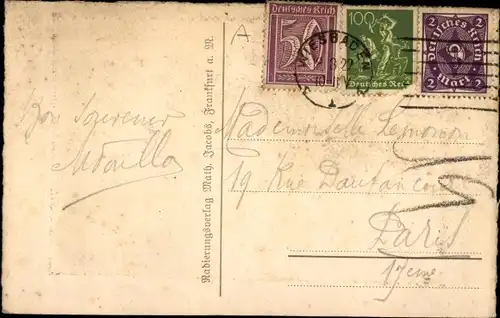 50
Deutsches Reich
100
Deutsches Reich
2 2
Deutsches Reich
Mark
WIESBADEN
1
A
Bon Souvenir
Mademoiselle Lemonon
19 Rue Dautancourt
Paris
17eme
Radierungsverlag Math. Jacobs, Frankfurt a. M.